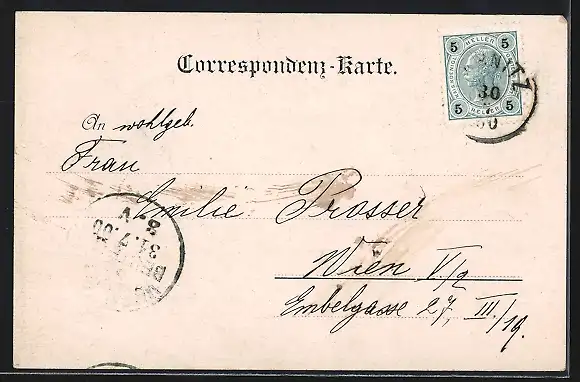 5 5
HELLER
Correspondenz-Karte.
5 5
HELLER
30
7
00
An wohlgeb.
Frau
Emilie Prosser
Wien V/2
Embelgasse 27, III/19.
8.V
31.7.00